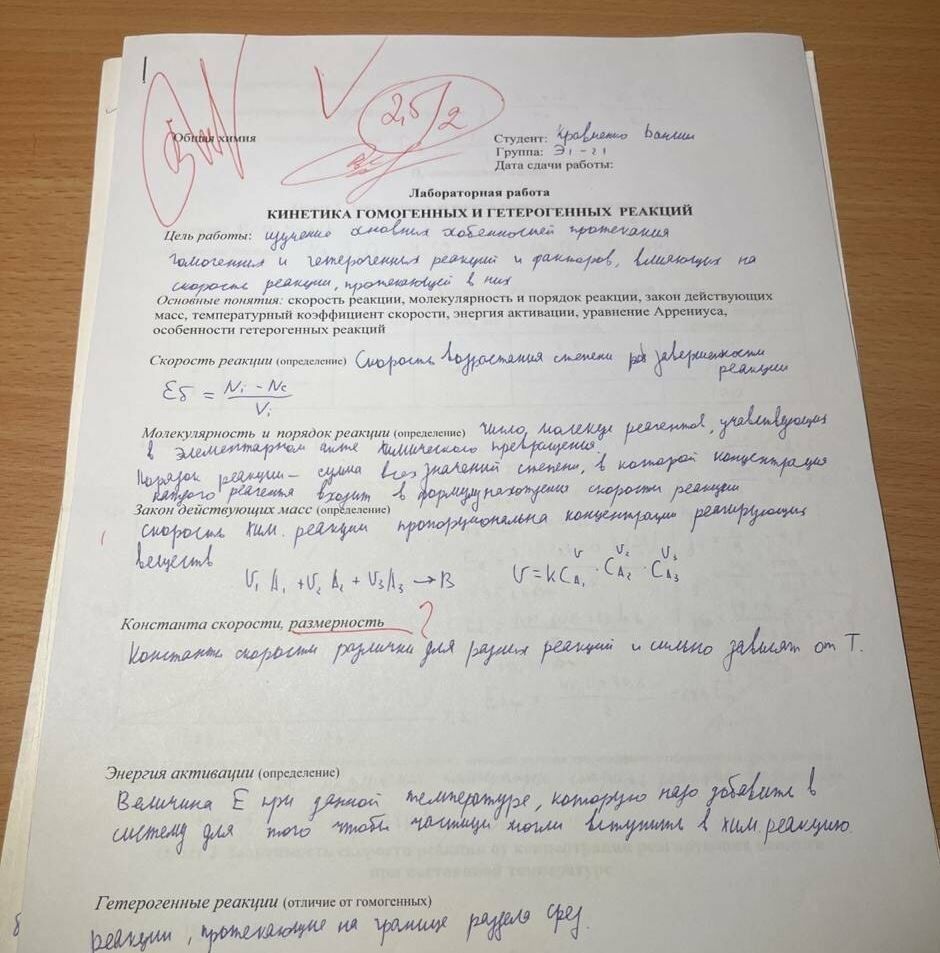 2,5/2
Общая химия
Студент: Кравченко
Группа: Э1-21
Дата сдачи работы:
Лабораторная работа
КИНЕТИКА ГОМОГЕННЫХ И ГЕТЕРОГЕННЫХ РЕАКЦИЙ
Цель работы: изучение основных особенностей протекания
гомогенных и гетерогенных реакций и факторов, влияющих на
скорость реакции, протекающей в них
Основные понятия: скорость реакции, молекулярность и порядок реакции, закон действующих
масс, температурный коэффициент скорости, энергия активации, уравнение Аррениуса,
особенности гетерогенных реакций
Скорость реакции (определение) Скорость возрастания степени завершенности
реакции
εδ = (Ni - Nc)/Vi
Молекулярность и порядок реакции (определение) число молекул реагентов, учавствующих
в элементарном акте химического превращения.
Порядок реакции – сумма всех значений степени, в которой концентрация
каждого реагента входит в формулу нахождения скорости реакции
Закон действующих масс (определение)
скорость хим. реакции пропорциональна концентрации реагирующих
веществ
V₁A₁ + V₂A₂ + V₃A₃ → B V = kC_A₁^V · C_A₂^V₂ · C_A₃^V₃
Константа скорости, размерность ?
Константы скорости различны для разных реакций и сильно зависят от T.
Энергия активации (определение)
Величина E при данной температуре, которую надо добавить в
систему для того чтобы частицы могли вступить в хим. реакцию.
Гетерогенные реакции (отличие от гомогенных)
реакции, протекающие на границе раздела сред.